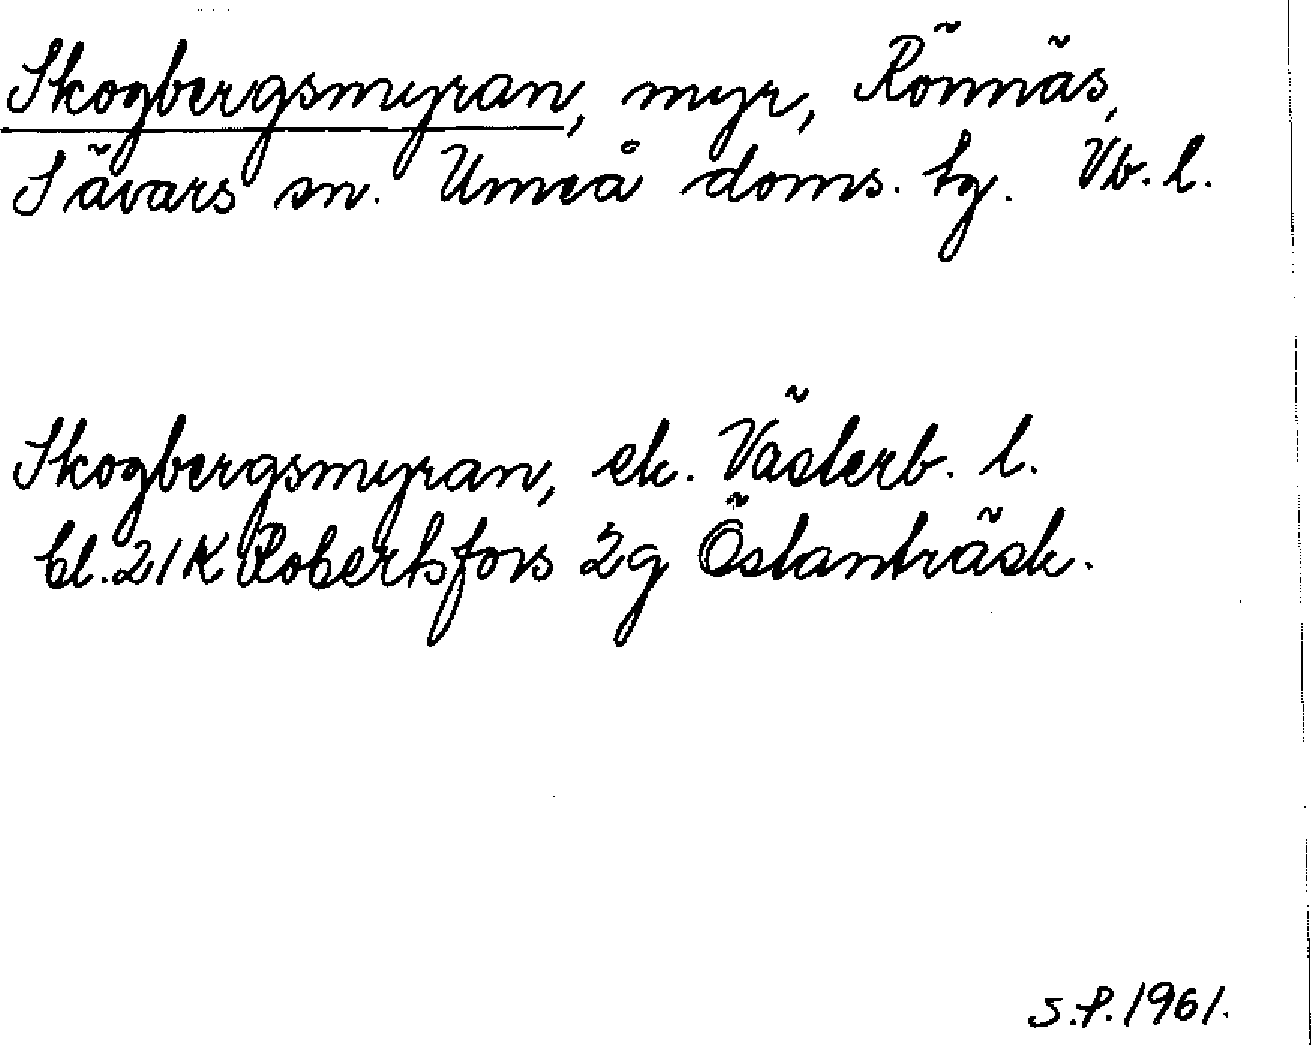 Skogbergsmyran, myr, Rönnäs,
Sävars sn. Umeå doms. tg. Vb. l.
Skogbergsmyran, ek. Västerb. l.
bl. 21K Robertsfors 2g Östanträsk.
S.P. 1961.